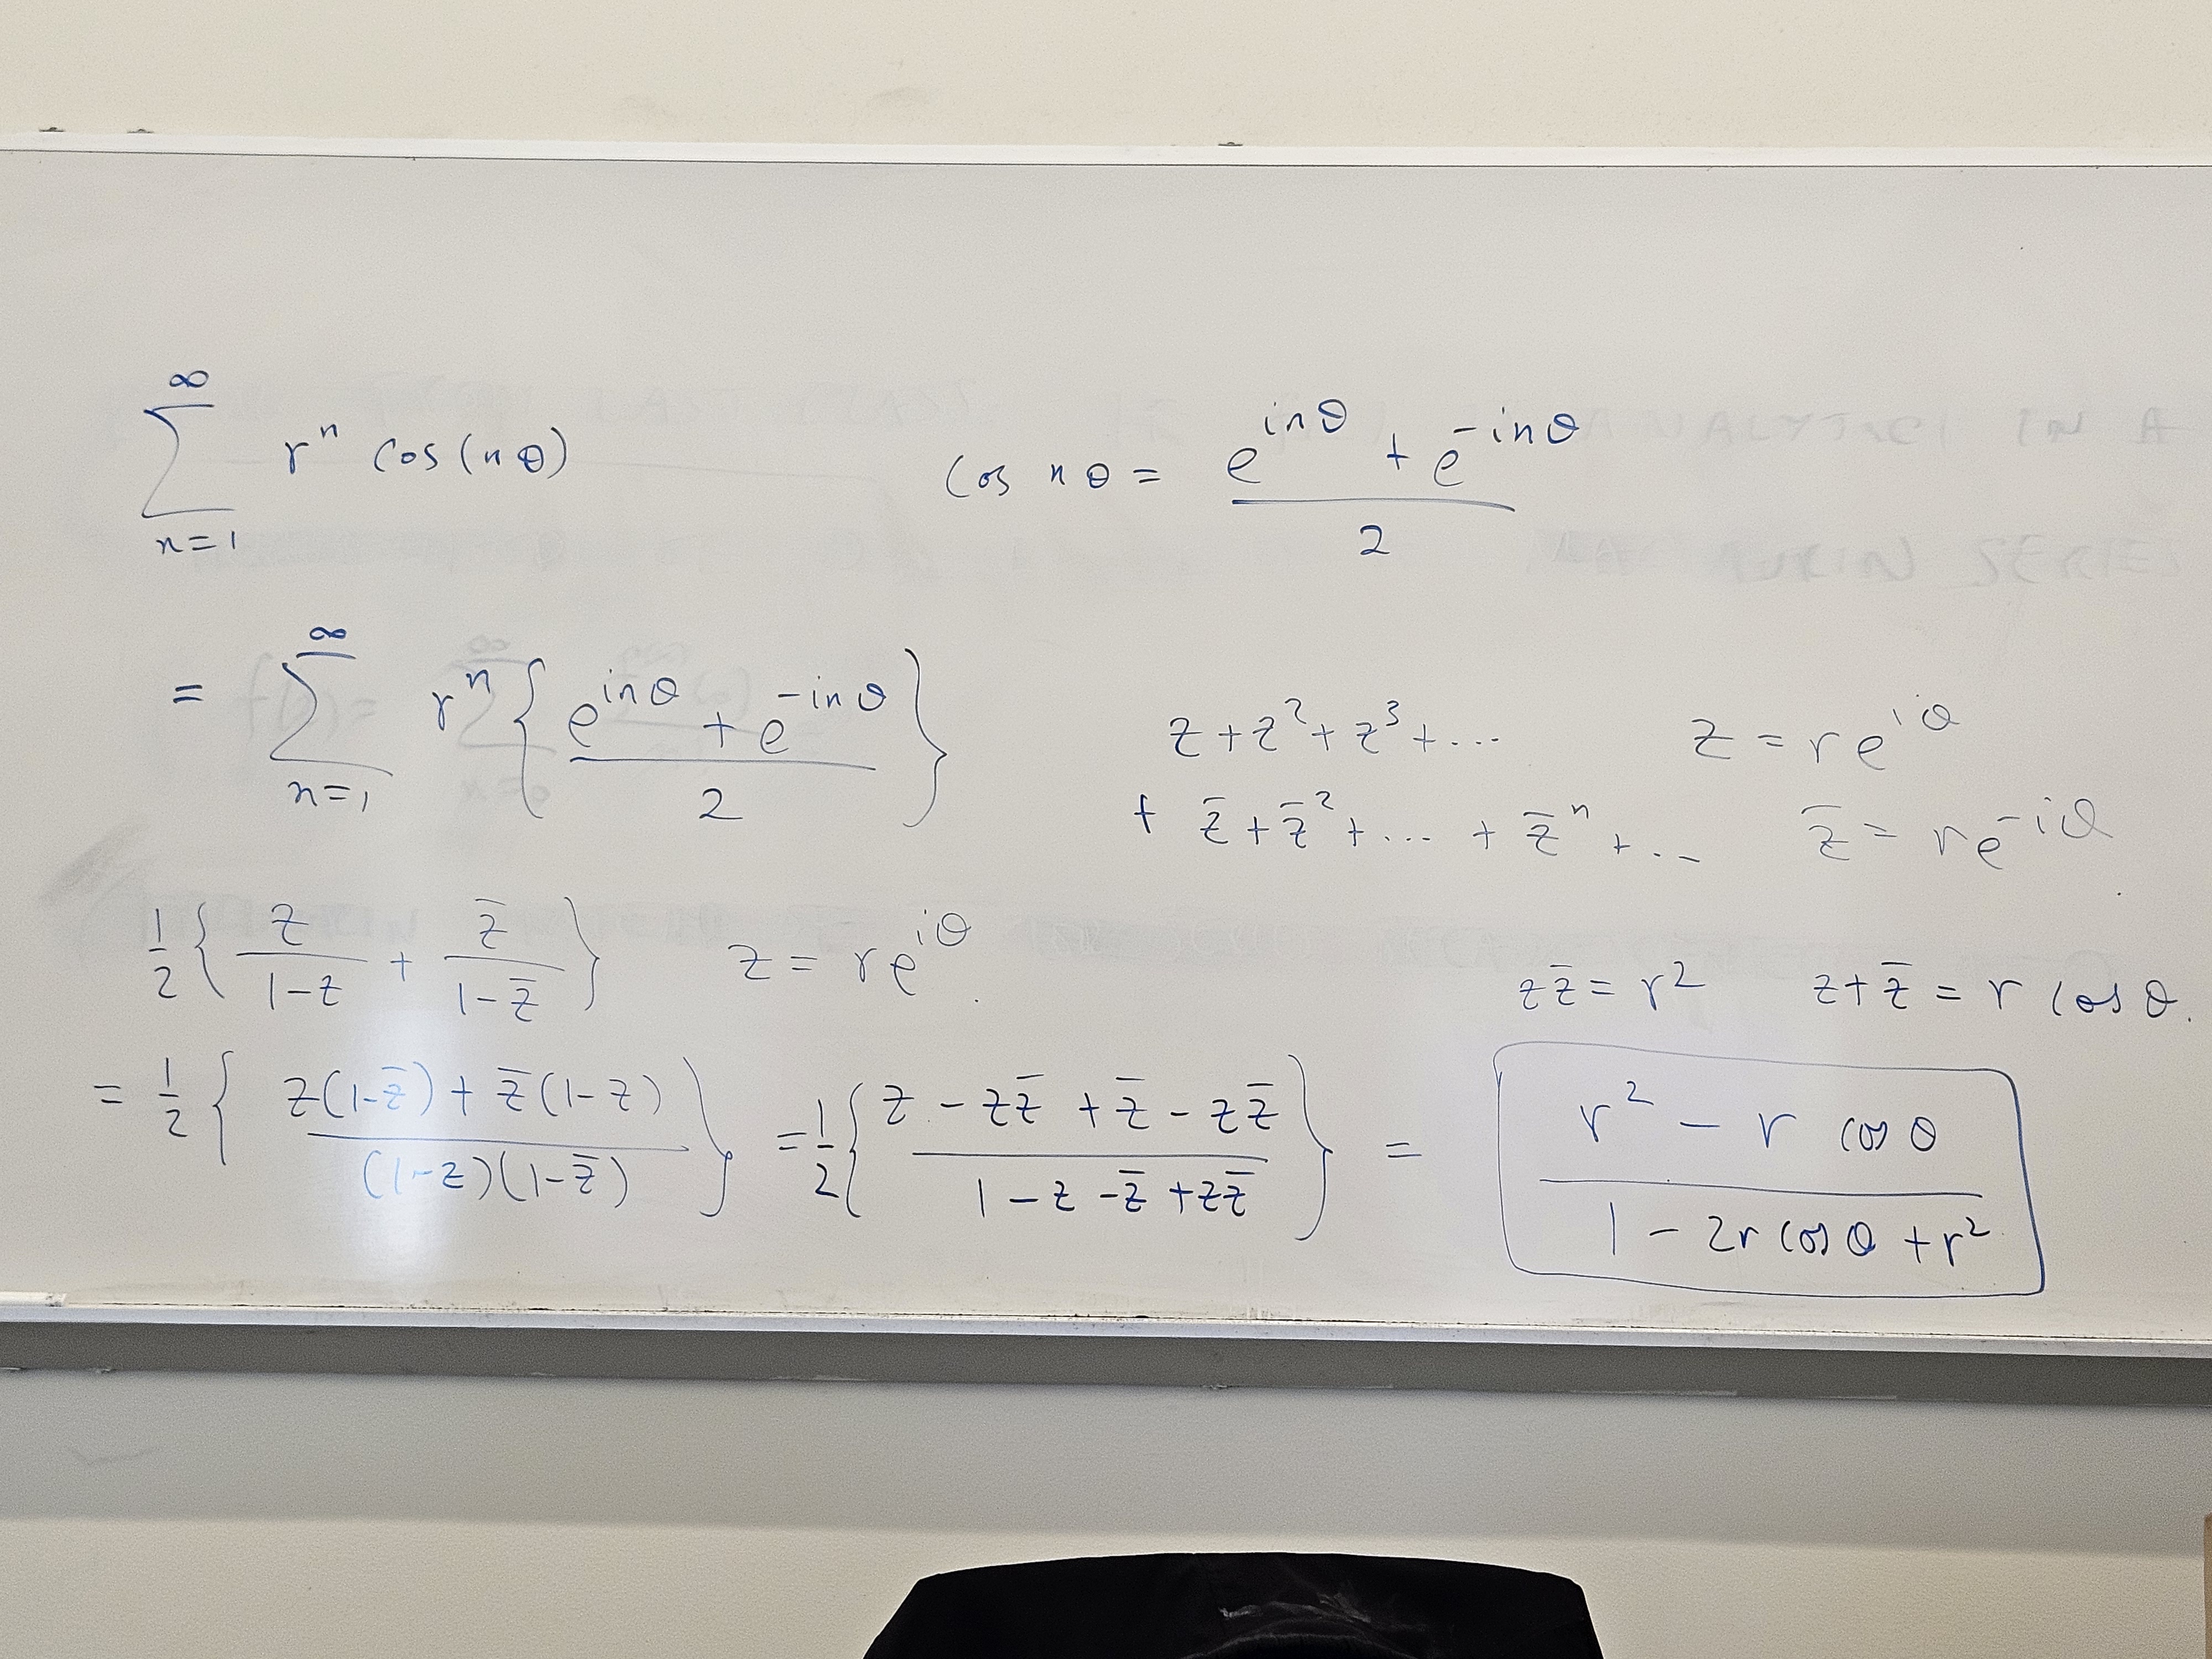 $\sum_{n=1}^{\infty} r^n \cos(n\theta)$ $\cos n\theta = \frac{e^{in\theta} + e^{-in\theta}}{2}$
$= \sum_{n=1}^{\infty} r^n \left\{ \frac{e^{in\theta} + e^{-in\theta}}{2} \right\}$
$z + z^2 + z^3 + \dots$ $z = re^{i\theta}$
$+ \bar{z} + \bar{z}^2 + \dots + \bar{z}^n + \dots$ $\bar{z} = re^{-i\theta}$
$\frac{1}{2} \left\{ \frac{z}{1-z} + \frac{\bar{z}}{1-\bar{z}} \right\}$ $z = re^{i\theta}.$
$z\bar{z} = r^2$ $z + \bar{z} = r \cos\theta.$
$= \frac{1}{2} \left\{ \frac{z(1-\bar{z}) + \bar{z}(1-z)}{(1-z)(1-\bar{z})} \right\} = \frac{1}{2} \left\{ \frac{z - z\bar{z} + \bar{z} - z\bar{z}}{1 - z - \bar{z} + z\bar{z}} \right\} = \boxed{\frac{r^2 - r\cos\theta}{1 - 2r\cos\theta + r^2}}$